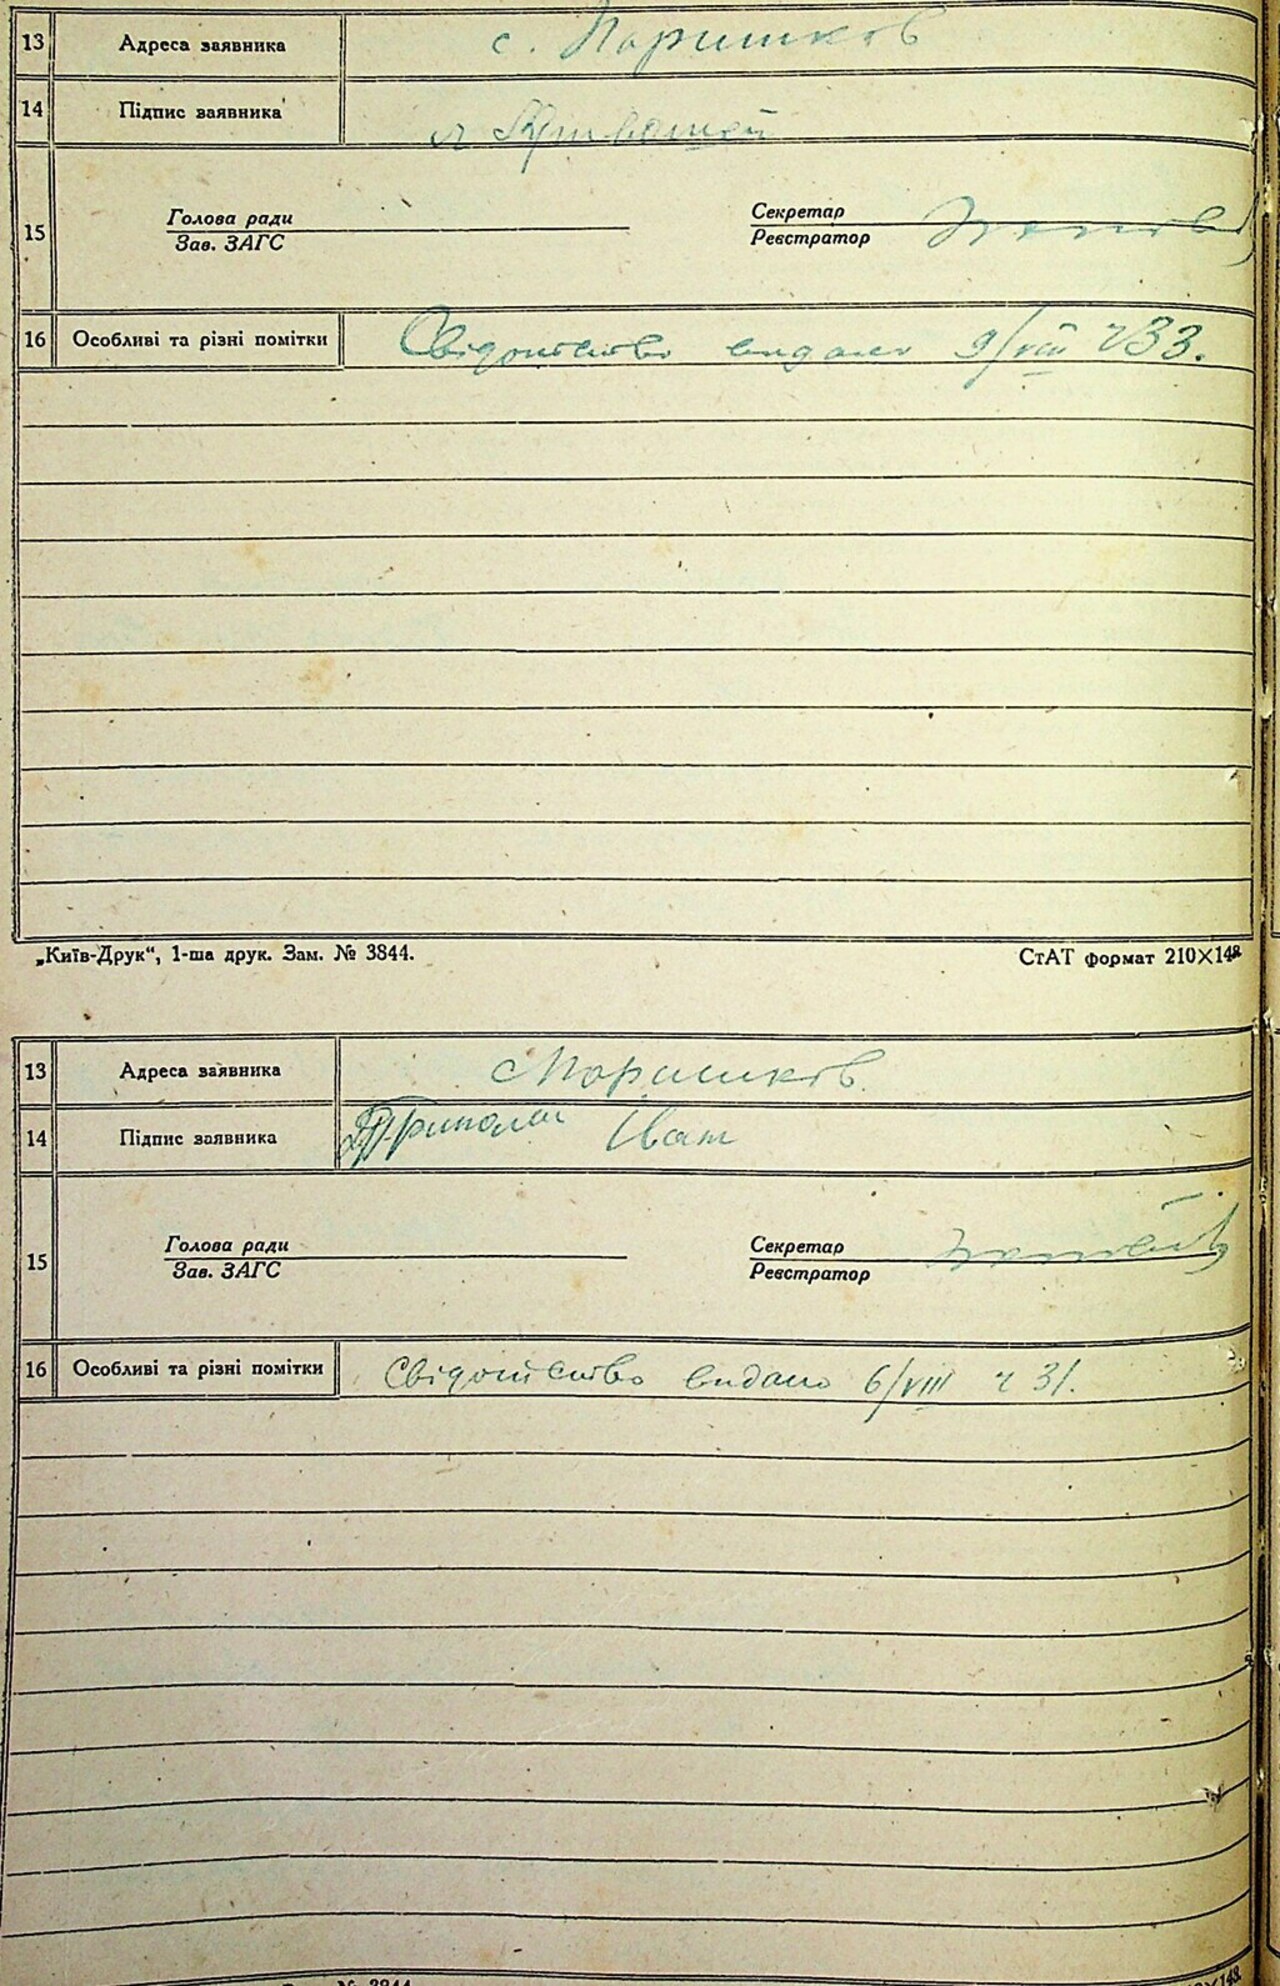 13 Адреса заявника с. Поришков
14 Підпис заявника
15 Голова ради Секретар
Зав. ЗАГС Реєстратор
16 Особливі та різні помітки Свідоцтво видано 9/VIII ч 33.
„Київ-Друк“, 1-ша друк. Зам. № 3844. СтАТ формат 210×148
13 Адреса заявника с Поришков.
14 Підпис заявника Іван
15 Голова ради Секретар
Зав. ЗАГС Реєстратор
16 Особливі та різні помітки Свідоцтво видано 6/VIII ч 31.
№ 3844